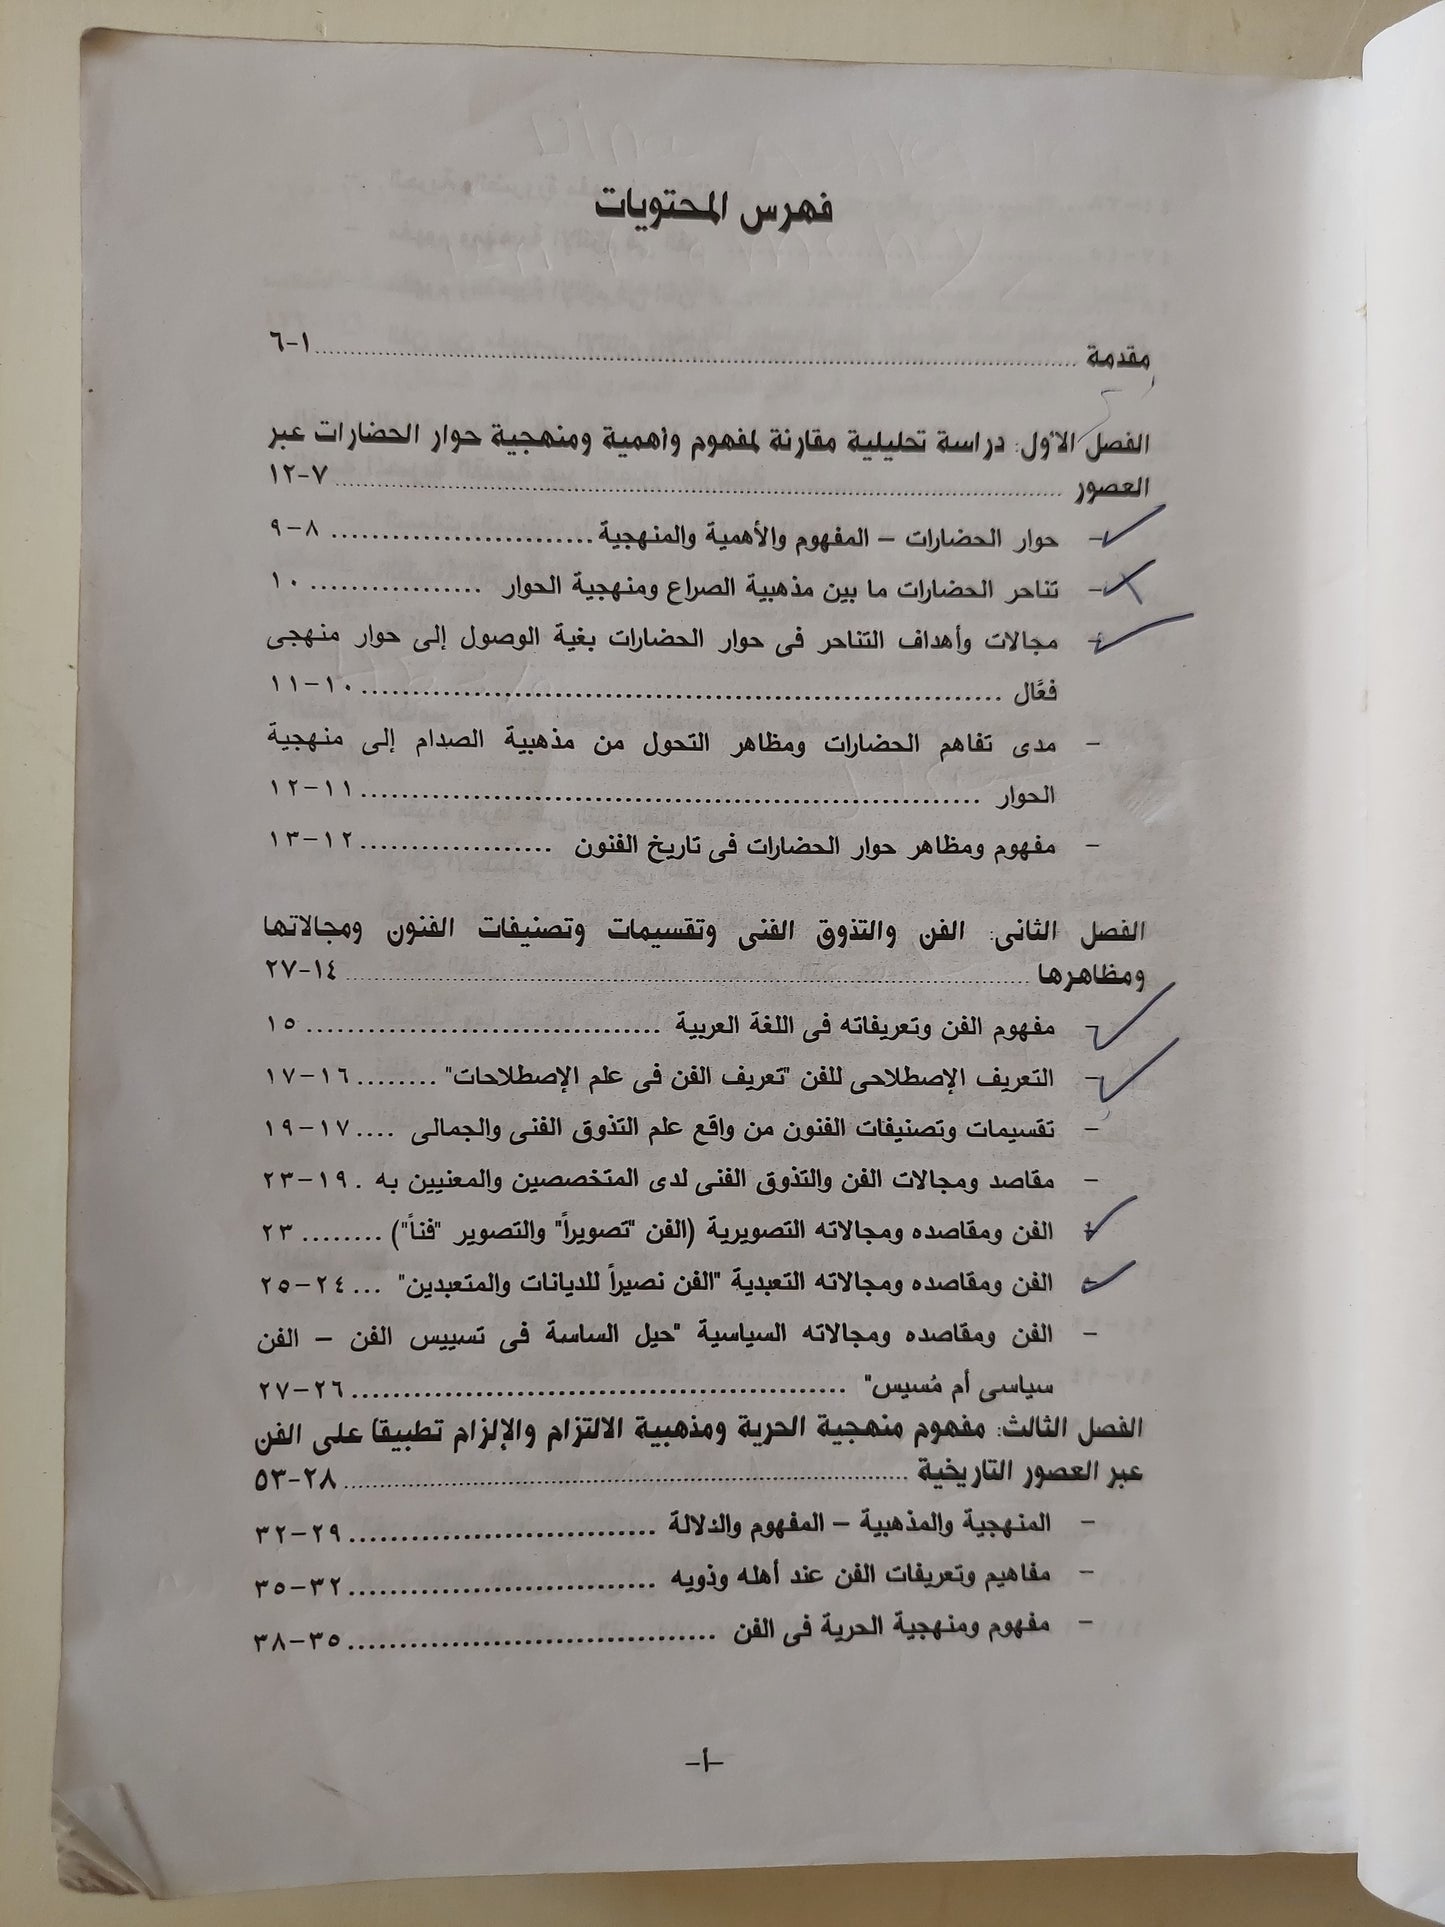 فهرس المحتويات
مقدمة ........ ١-٦
الفصل الأول: دراسة تحليلية مقارنة لمفهوم وأهمية ومنهجية حوار الحضارات عبر
العصور ........ ٧-١٢
- حوار الحضارات – المفهوم والأهمية والمنهجية ........ ٨-٩
- تناحر الحضارات ما بين مذهبية الصراع ومنهجية الحوار ........ ١٠
- مجالات وأهداف التناحر فى حوار الحضارات بغية الوصول إلى حوار منهجى
فعَّال ........ ١٠-١١
- مدى تفاهم الحضارات ومظاهر التحول من مذهبية الصدام إلى منهجية
الحوار ........ ١١-١٢
- مفهوم ومظاهر حوار الحضارات فى تاريخ الفنون ........ ١٢-١٣
الفصل الثانى: الفن والتذوق الفنى وتقسيمات وتصنيفات الفنون ومجالاتها
ومظاهرها ........ ١٤-٢٧
- مفهوم الفن وتعريفاته فى اللغة العربية ........ ١٥
- التعريف الإصطلاحى للفن "تعريف الفن فى علم الإصطلاحات" ........ ١٦-١٧
- تقسيمات وتصنيفات الفنون من واقع علم التذوق الفنى والجمالى .... ١٧-١٩
- مقاصد ومجالات الفن والتذوق الفنى لدى المتخصصين والمعنيين به . ١٩-٢٣
- الفن ومقاصده ومجالاته التصويرية (الفن "تصويراً" والتصوير "فناً") ........ ٢٣
- الفن ومقاصده ومجالاته التعبدية "الفن نصيراً للديانات والمتعبدين" ... ٢٤-٢٥
- الفن ومقاصده ومجالاته السياسية "حيل الساسة فى تسييس الفن – الفن
سياسى أم مُسيس" ........ ٢٦-٢٧
الفصل الثالث: مفهوم منهجية الحرية ومذهبية الالتزام والإلزام تطبيقا على الفن
عبر العصور التاريخية ........ ٢٨-٥٣
- المنهجية والمذهبية – المفهوم والدلالة ........ ٢٩-٣٢
- مفاهيم وتعريفات الفن عند أهله وذويه ........ ٣٢-٣٥
- مفهوم ومنهجية الحرية فى الفن ........ ٣٥-٣٨
-أ-